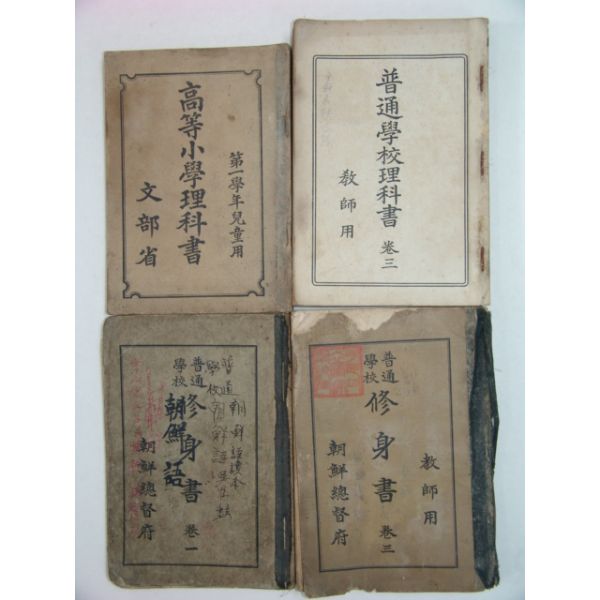 高等小學理科書
第一學年兒童用
文部省
普通學校理科書 卷三
教師用
普通學校
修身書 卷一
朝鮮語
朝鮮總督府
普通學校
修身書 卷三
教師用
朝鮮總督府